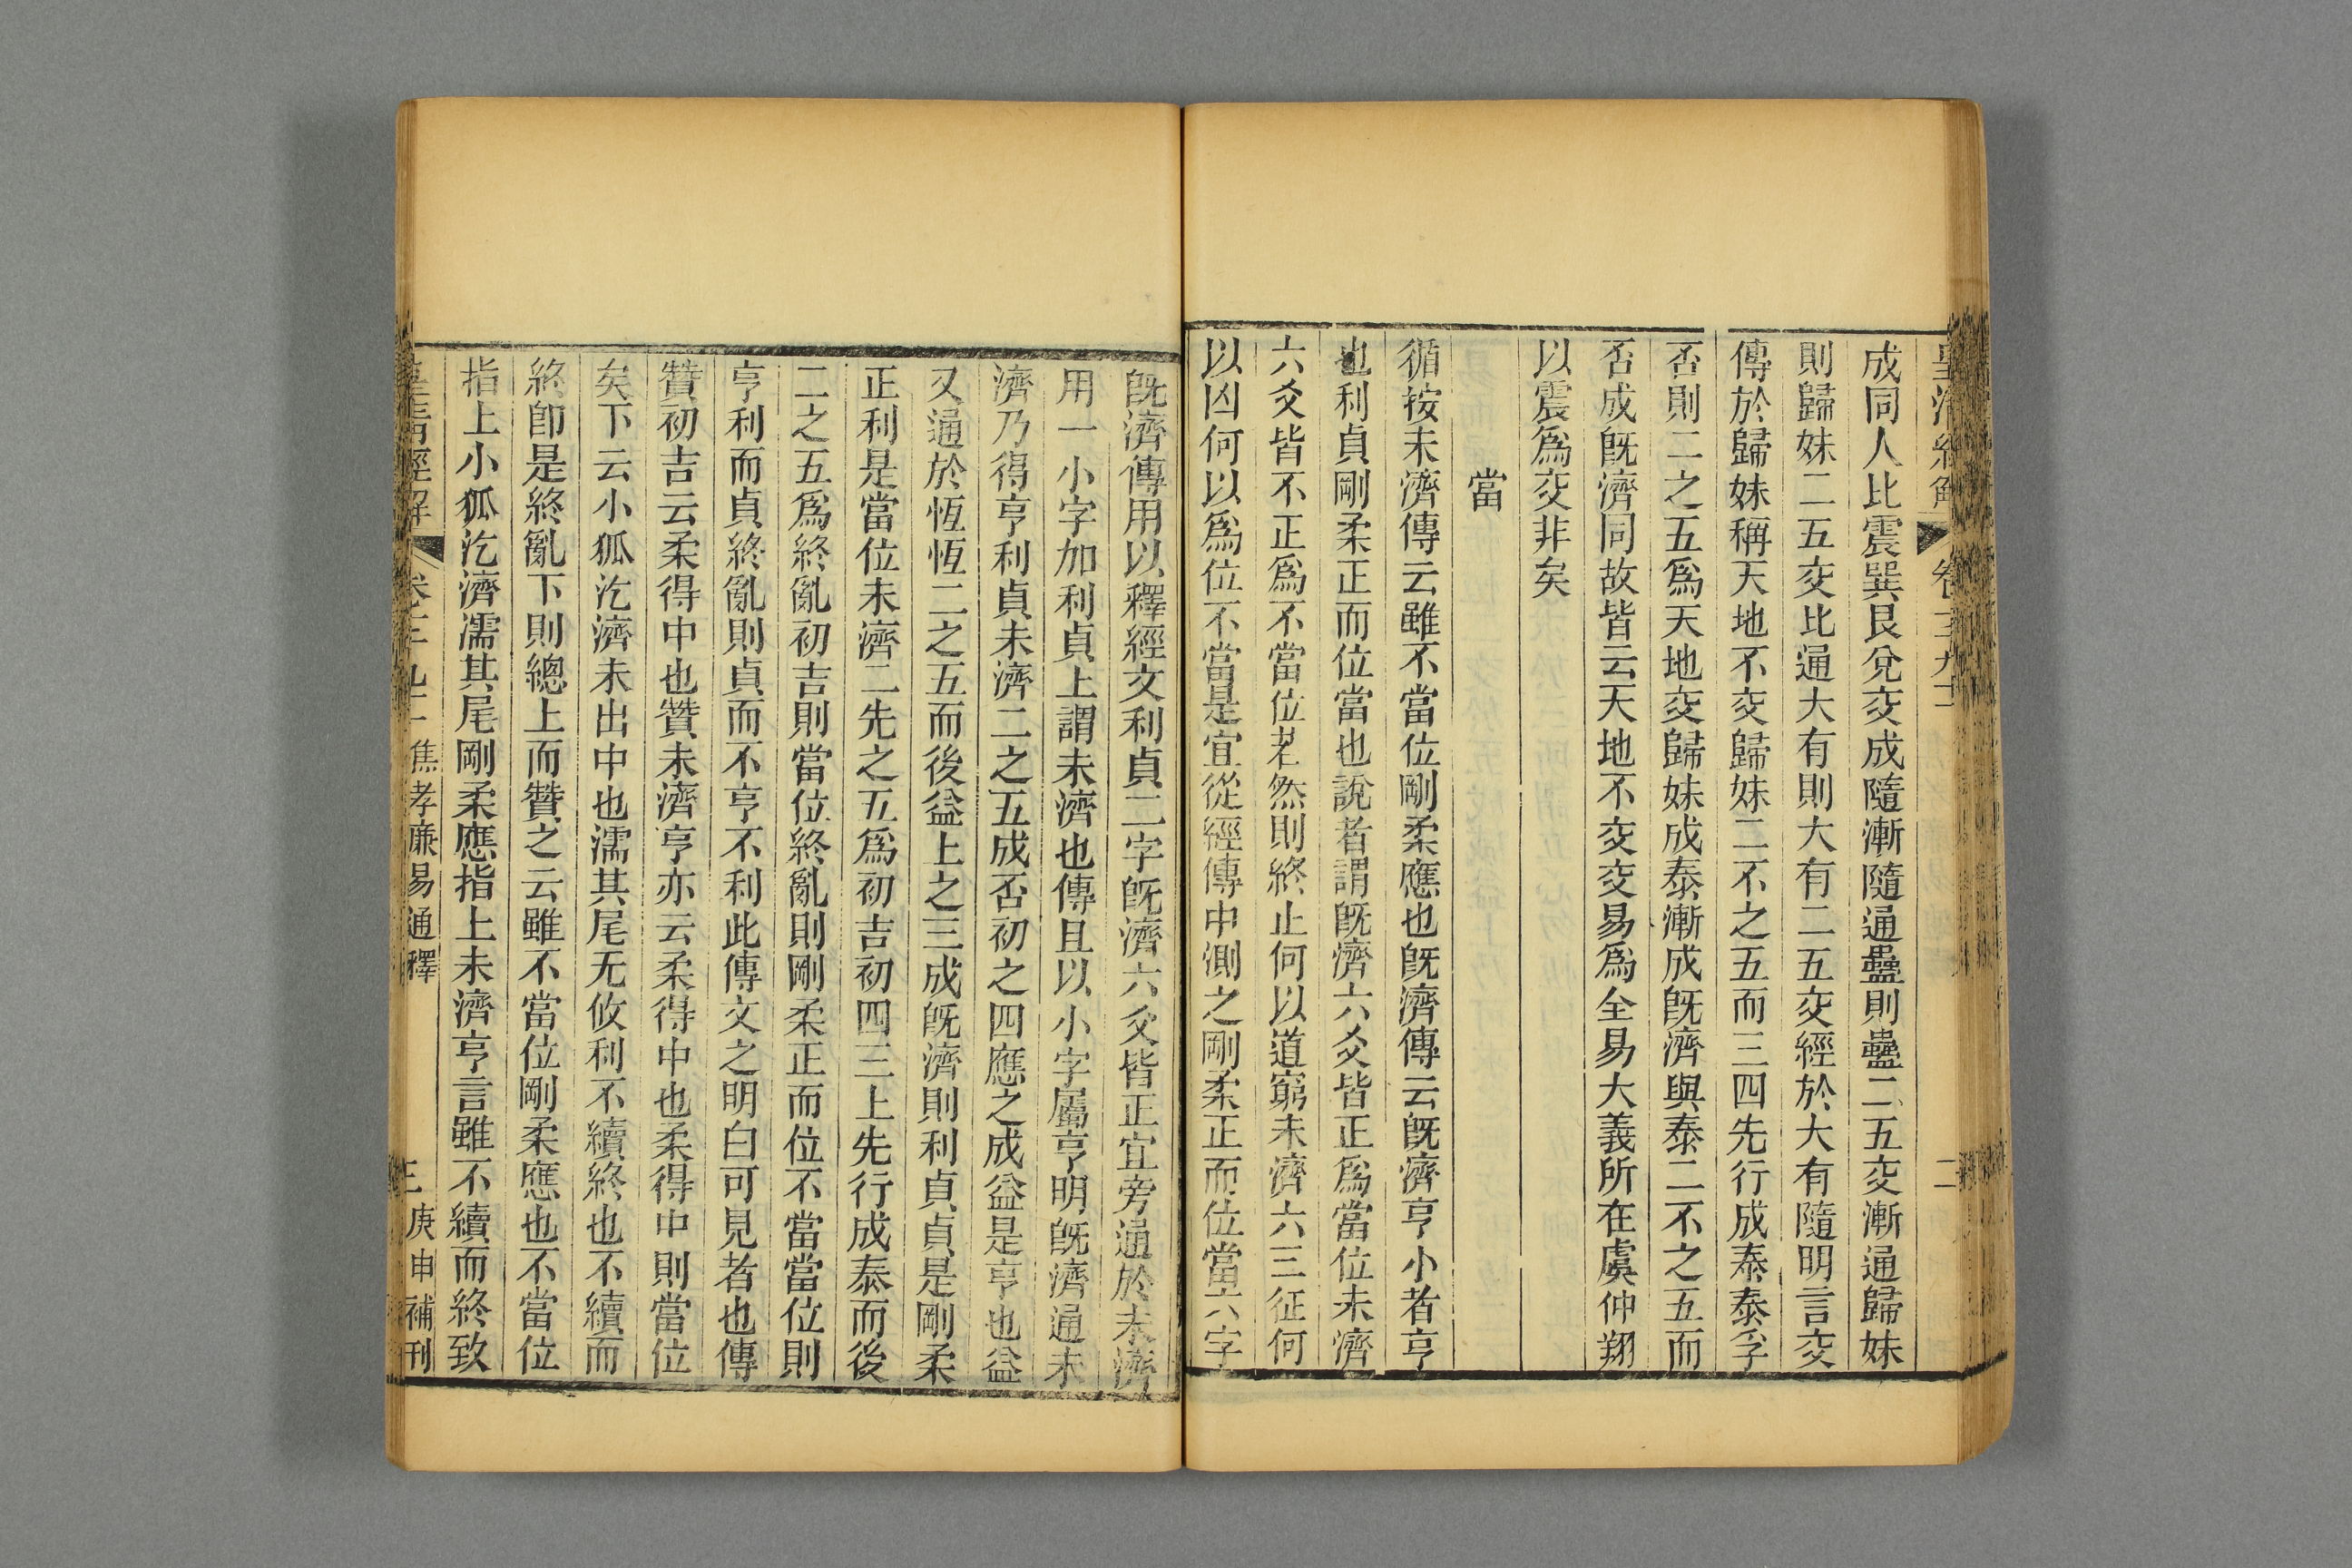 成同人比震巽艮兌交成隨漸隨通蠱則蠱二五交漸通歸妹
則歸妹二五交比通大有則大有二五交經於大有隨明言交
傳於歸妹稱天地不交歸妹二不之五而三四先行成泰泰孚
否則二之五爲天地交歸妹成泰漸成旣濟與泰二不之五而
否成旣濟同故皆云天地不交交易爲全易大義所在虞仲翔
以震爲交非矣
當
循按未濟傳云雖不當位剛柔應也旣濟傳云旣濟亨小者亨
也利貞剛柔正而位當也說者謂旣濟六爻皆正爲當位未濟
六爻皆不正爲不當位若然則終止何以道窮未濟六三征何
以凶何以爲位不當是宜從經傳中測之剛柔正而位當六字
旣濟傳用以釋經文利貞二字旣濟六爻皆正宜旁通於未濟
用一小字加利貞上謂未濟也傳且以小字屬亨明旣濟通未
濟乃得亨利貞未濟二之五成否初之四應之成益是亨也益
又通於恆恆二之五而後益上之三成旣濟則利貞貞是剛柔
正利是當位未濟二先之五爲初吉初四三上先行成泰而後
二之五爲終亂初吉則當位終亂則剛柔正而位不當當位則
亨利而貞終亂則貞而不亨不利此傳文之明白可見者也傳
贊初吉云柔得中也贊未濟亨亦云柔得中也柔得中則當位
矣下云小狐汔濟未出中也濡其尾无攸利不續終也不續而
終卽是終亂下則總上而贊之云雖不當位剛柔應也不當位
指上小狐汔濟濡其尾剛柔應指上未濟亨言雖不續而終致
皇淸經解 卷 焦孝廉易通釋 三 庚申補刊